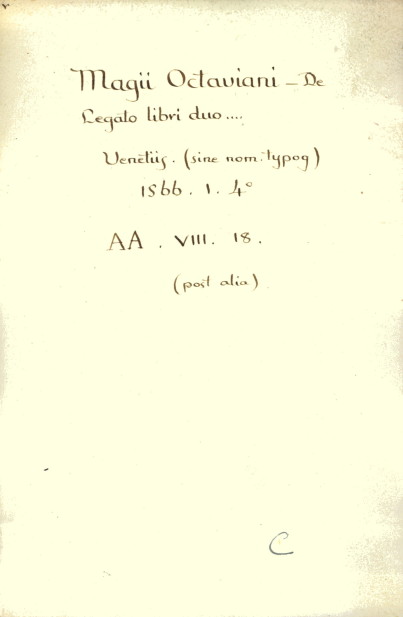 Magii Octaviani – De
Legato libri duo....
Venetiis. (sine nom. typog)
1566. 1. 4°
AA. VIII. 18.
(post alia)
C